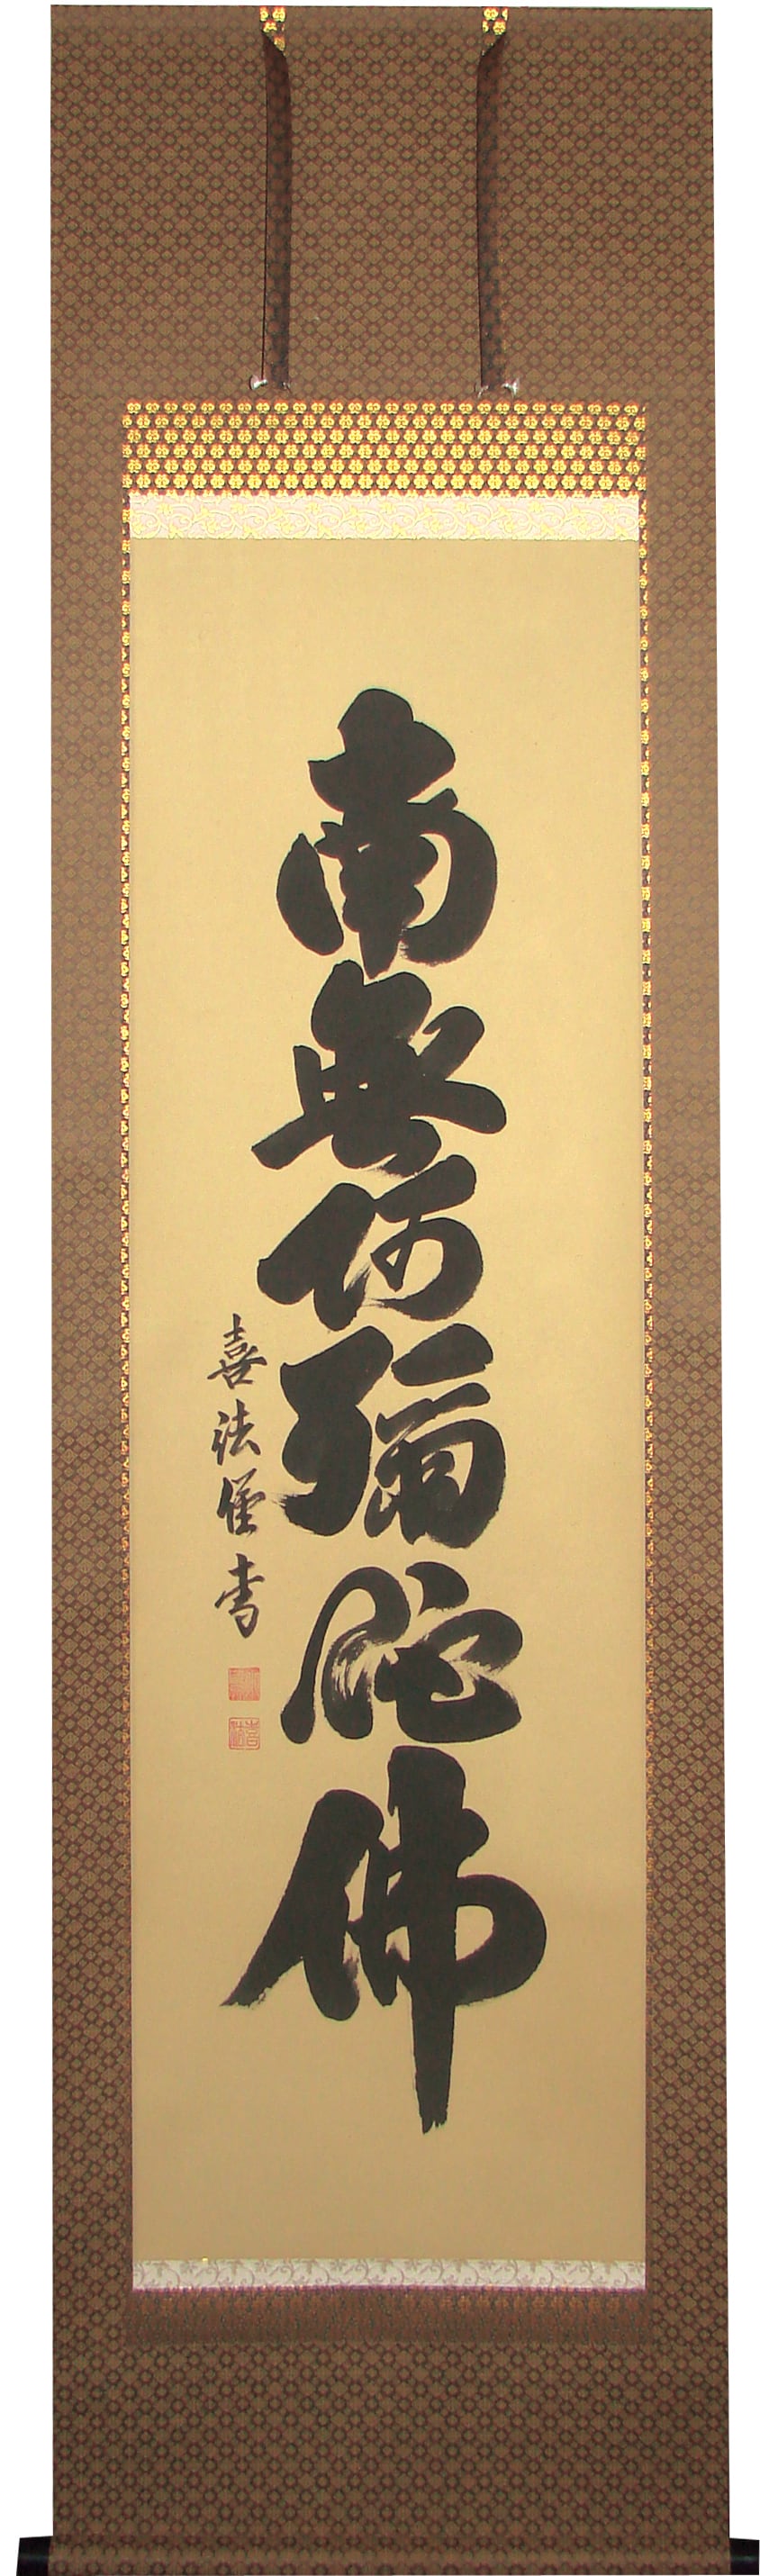 南無阿彌陀佛
喜法僅書